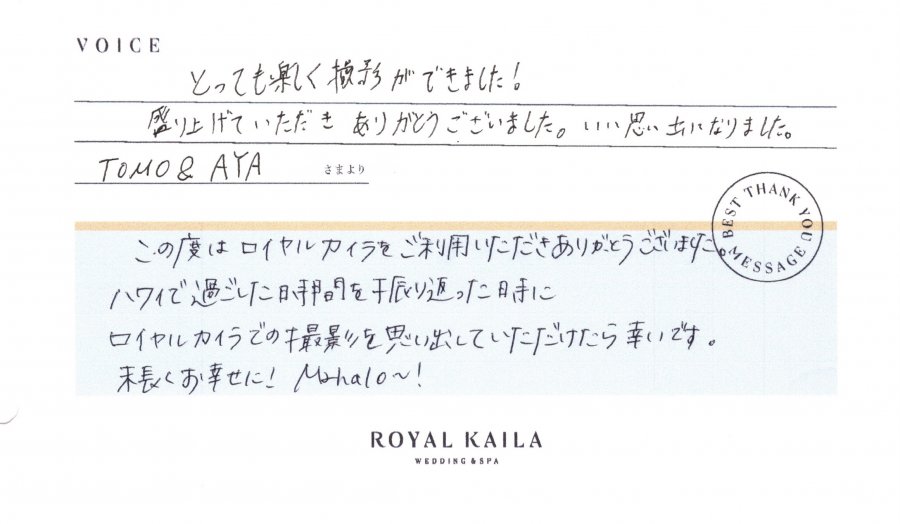 VOICE
とっても楽しく撮影ができました！
盛り上げていただき ありがとうございました。いい思い出になりました。
TOMO & AYA さまより
BEST THANK YOU MESSAGE
この度はロイヤルカイラをご利用いただきありがとうございました。
ハワイで過ごした時間を振り返った時に
ロイヤルカイラでの撮影を思い出していただけたら幸いです。
末長くお幸せに！ Mahalo〜！
ROYAL KAILA
WEDDING & SPA